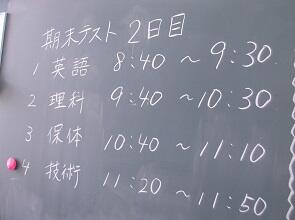 期末テスト 2日目
1 英語 8:40 ~ 9:30
2 理科 9:40 ~ 10:30
3 保体 10:40 ~ 11:10
4 技術 11:20 ~ 11:50